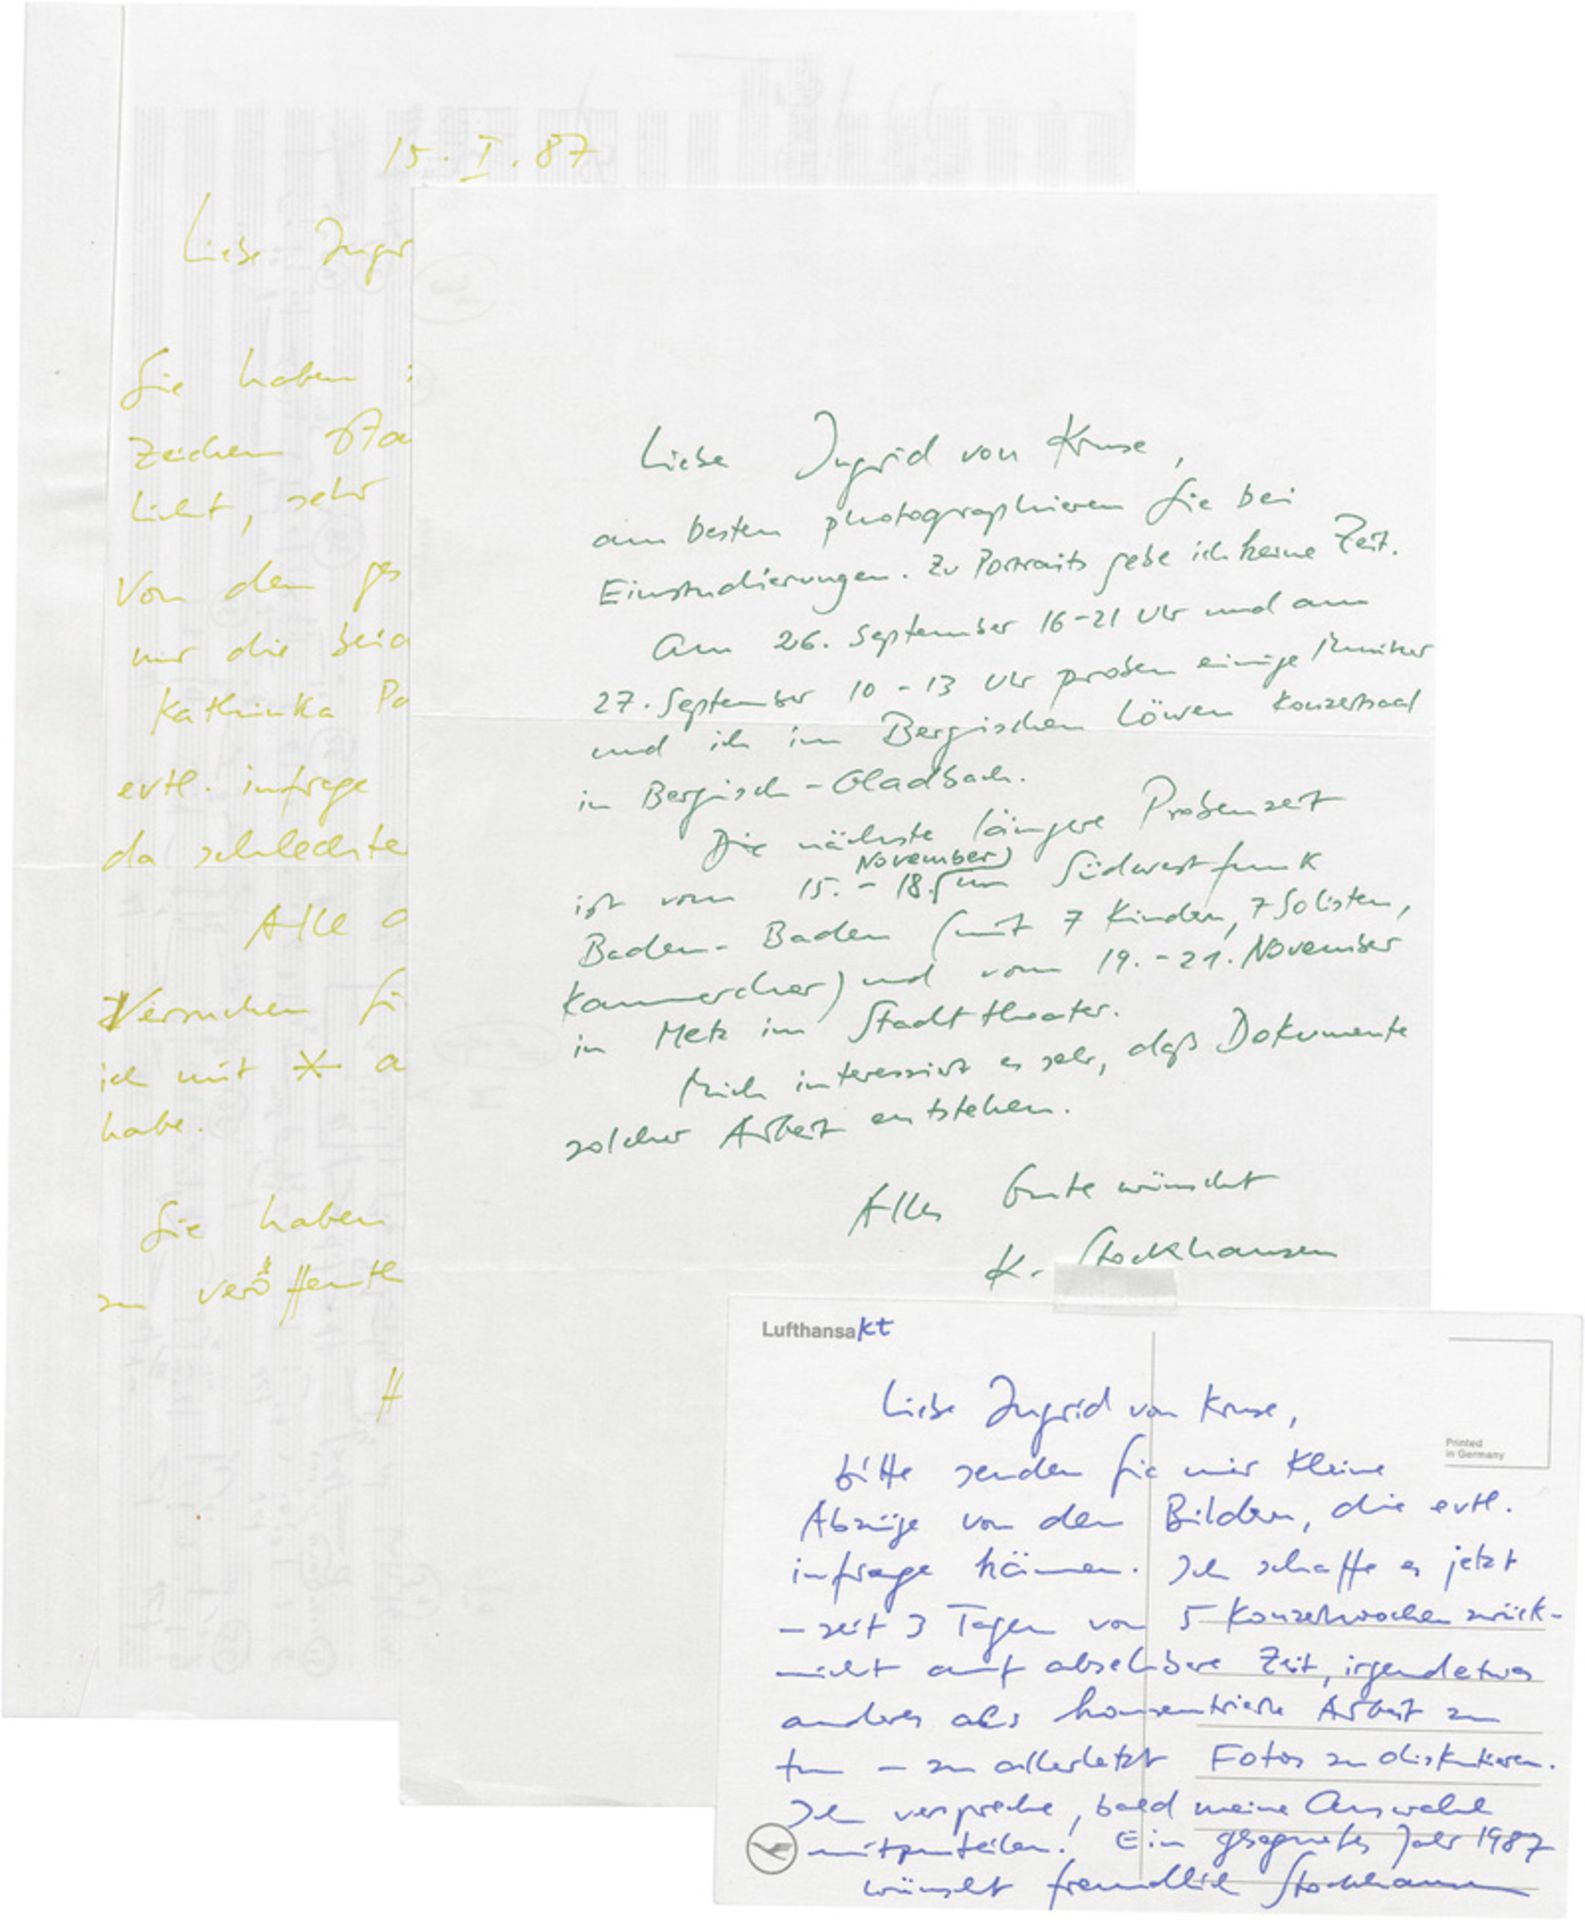 15. I. 87
Liebe Ingr
Sie haben
Zeichen Sta
licht, sehr
Von den ges
mir die beid
Kathinka Pa
evtl. infrage
da schlechte
Alle a
Versuchen Si
ich mit * a
habe.
Sie haben
zu veröffentl
H
Liebe Ingrid von Kruse,
am besten photographieren Sie bei
Einstudierungen. Zu Portraits gebe ich keine Zeit.
Am 26. September 16-21 Uhr und am
27. September 10-13 Uhr proben einige Musiker
und ich im Bergischen Löwen Konzertsaal
in Bergisch-Gladbach.
Die nächste längere Probenzeit
November)
ist vom 15.-18. im Südwestfunk
Baden-Baden (mit 7 Kindern, 7 Solisten,
Kammerchor) und vom 19.-21. November
in Metz im Stadttheater.
Mich interessiert es sehr, daß Dokumente
solcher Arbeit entstehen.
Alles Gute wünscht
K. Stockhausen
Lufthansakt
Liebe Ingrid von Kruse,
bitte senden Sie mir kleine
Abzüge von den Bildern, die evtl.
infrage kämen. Ich schaffe es jetzt
– seit 3 Tagen von 5 Konzertwochen zurück –
nicht auf absehbare Zeit, irgendetwas
anderes als konzentrierte Arbeit zu
tun – zu allerletzt Fotos zu diskutieren.
Ich verspreche, bald meine Auswahl
mitzuteilen! Ein gesegnetes Jahr 1987
wünscht freundlich Stockhausen
Printed
in Germany